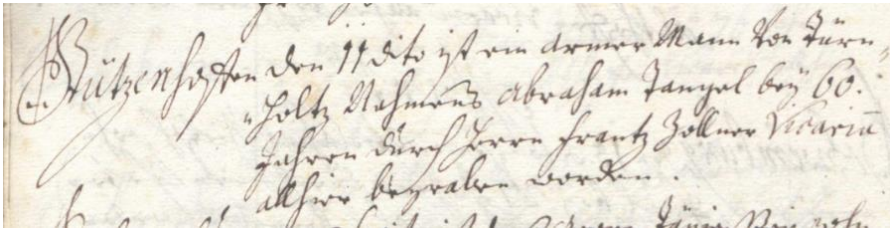 Stützenhoffen den 11 dito ist ein armer Mann Von Türn-
holtz Nahmens Abraham Tangel beÿ 60.
Jahren durch Herrn Frantz Zollner Vicarium
allhier begraben worden.